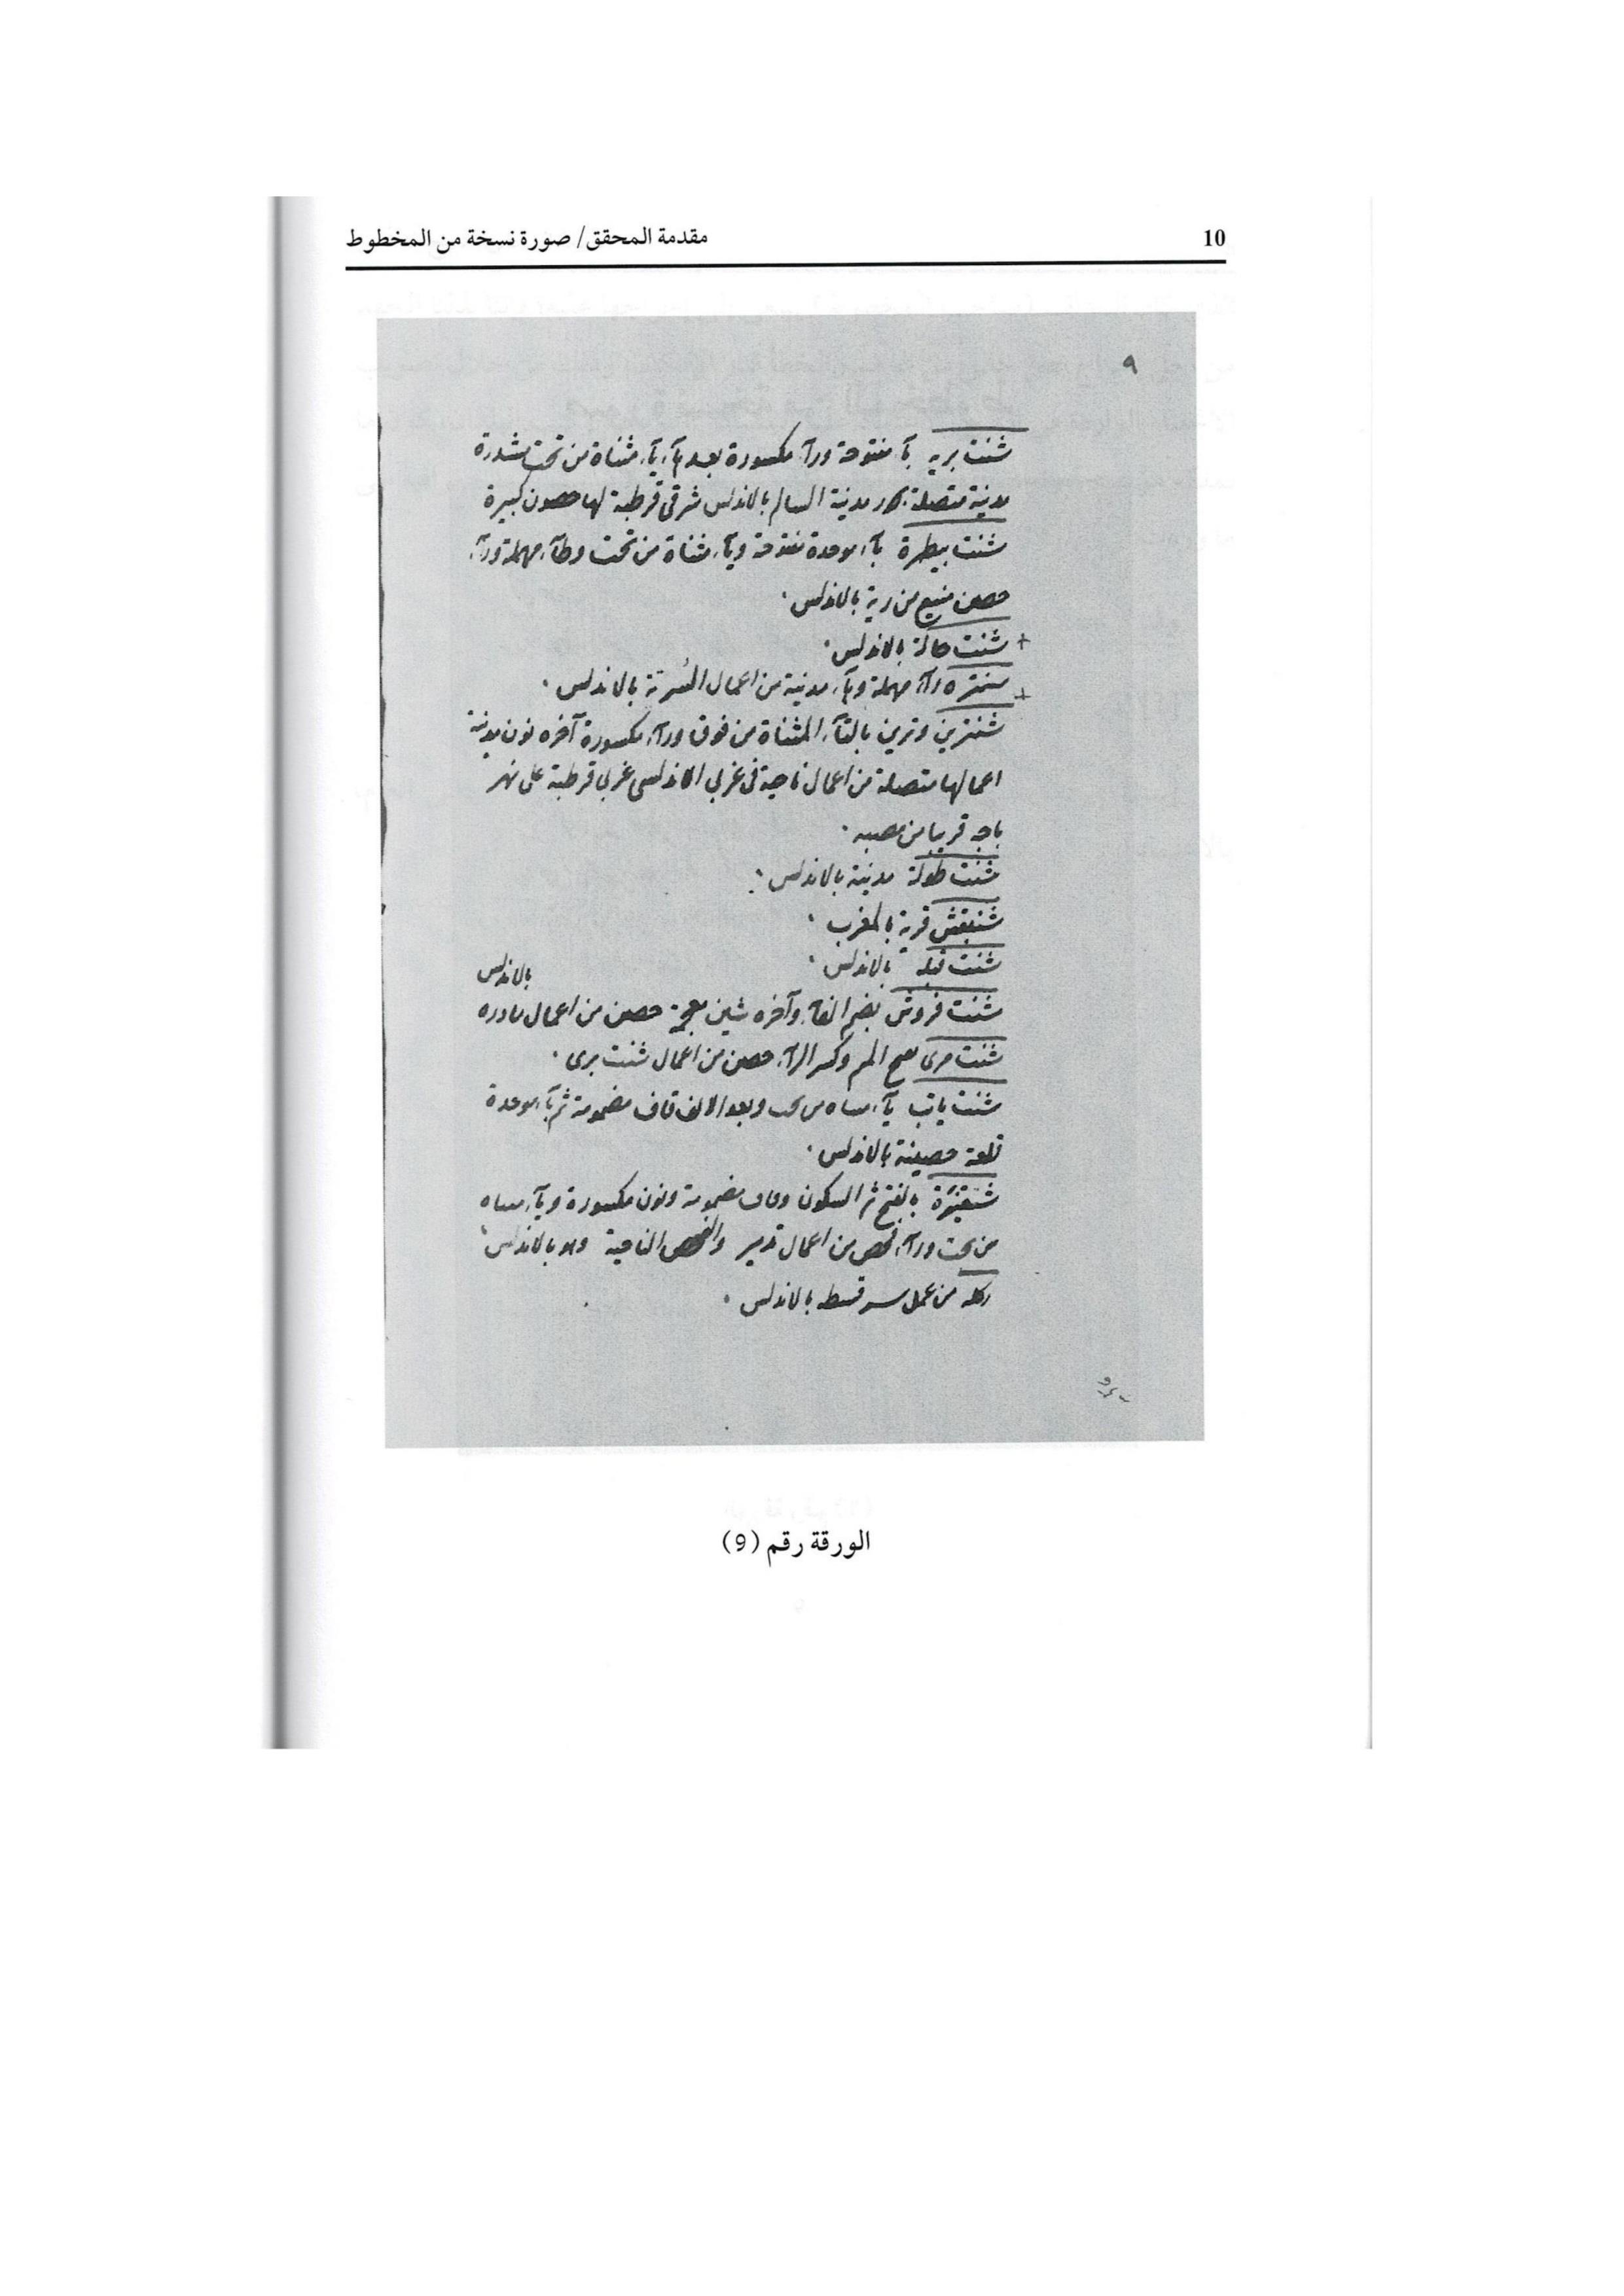 10
مقدمة المحقق/ صورة نسخة من المخطوط
٩
شنت بريه بآء مفتوحة ورآء مكسورة بعدها يآء مثناة من تحت مشددة
مدينة متصلة بحوز مدينة السالم بالاندلس شرقي قرطبة لها حصون كبيرة
شنت بيطرة بآء موحدة مفتوحة ويآء مثناة من تحت وطآء مهملة ورآء
حصن منيع من رية بالاندلس.
+ شنت حالة بالاندلس.
+ شنتره رآء مهملة وهآء مدينة من اعمال بالاندلس.
شنترين وترين بالتآء المثناة من فوق ورآء مكسورة آخره نون مدينة
اعمالها متصلة من اعمال ناحية في غربي الاندلس غربي قرطبة على نهر
باجه قريبا من مصبه.
شنت طولة مدينة بالاندلس.
شنتقش قرية بالمغرب.
شنت قبله بالاندلس.
بالاندلس
شنت فروش بضم الفآء وآخره شين معجمة حصن من اعمال مادره
شنت مرى بفتح الميم وكسر الرآء حصن من اعمال شنت برى.
شنت ياقب يآء مثناه من تحت وبعد الالف قاف مضمومة ثم بآء موحدة
قلعة حصينة بالاندلس.
شنقنيرة بالفتح ثم السكون وقاف مضمومة ونون مكسورة ويآء مثناه
من تحت ورآء فحص من اعمال تدمير والفحص الناحية وهو بالاندلس.
ركله من عمل سرقسطه بالاندلس.
الورقة رقم (9)